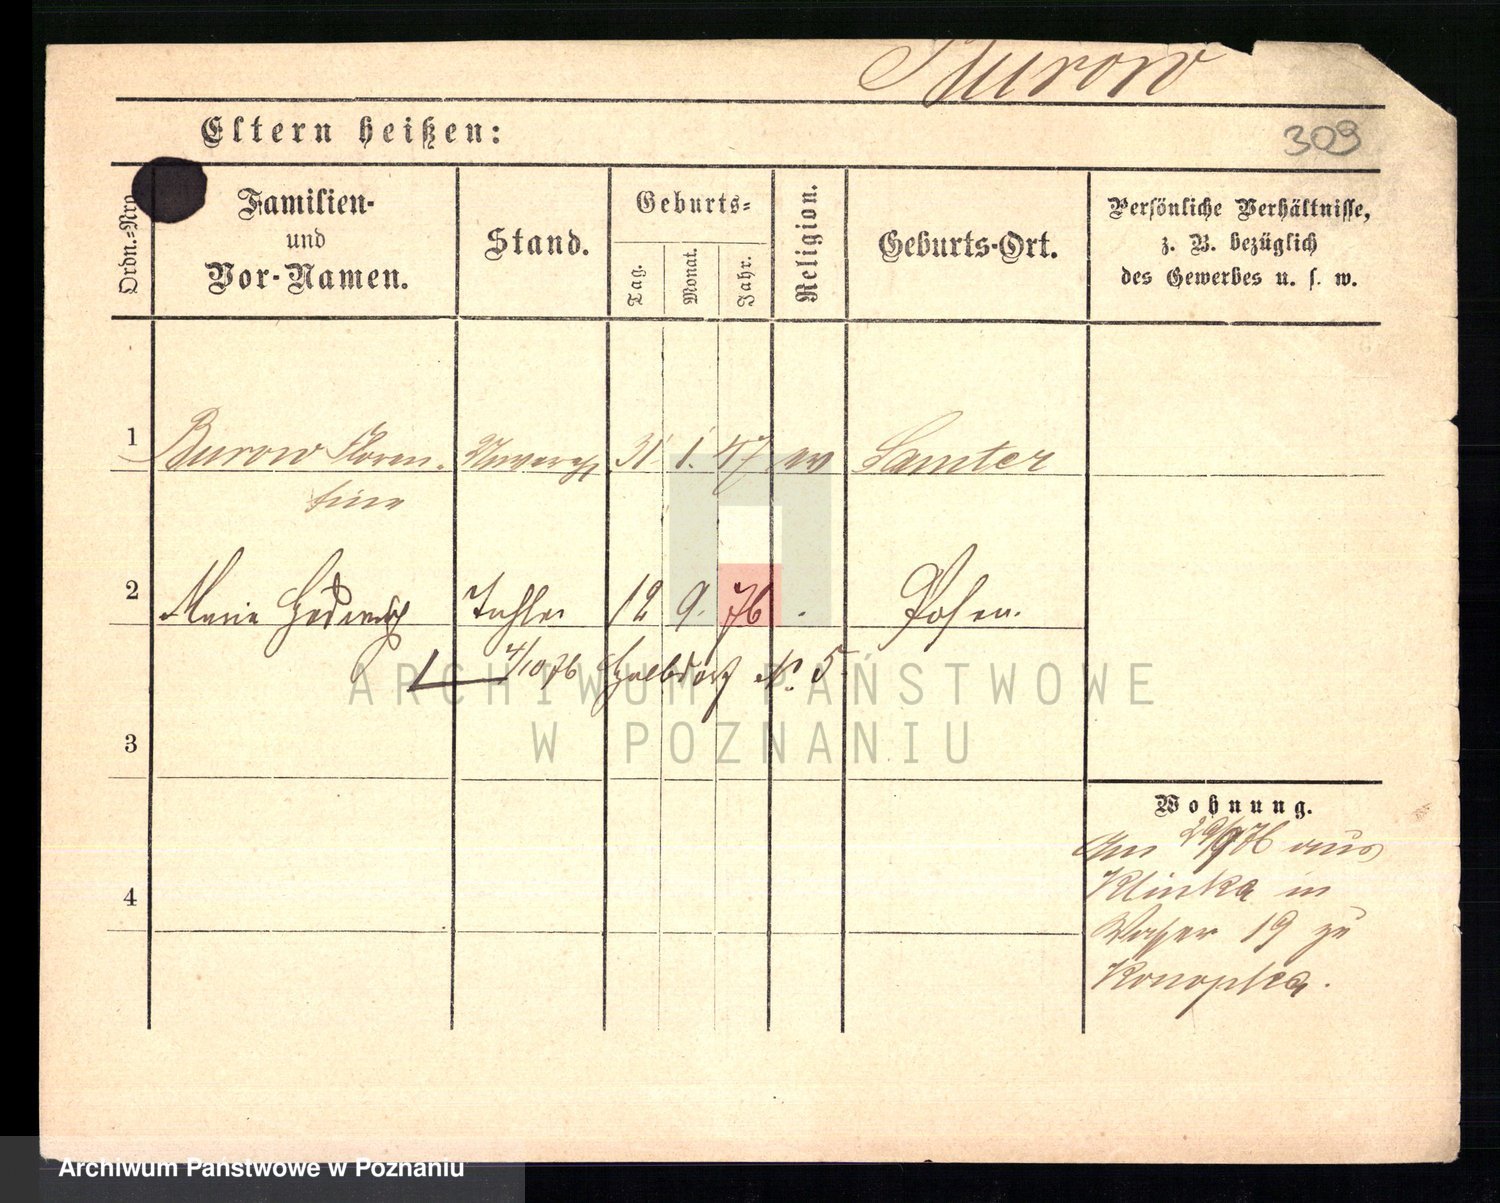 Burow
Eltern heißen:
309
Ordn.-Nro
Familien-
und
Vor-Namen.
Stand.
Geburts-
Tag.
Monat.
Jahr.
Religion.
Geburts-Ort.
Persönliche Verhältnisse,
z. B. bezüglich
des Gewerbes u. s. w.
1 Burow Floren- 31. 1. 47 ev Samter
tine
2 Marie Hedwig Tochter 12 9. 76 . Posen.
4/10 76 No. 5
ARCHIWUM PAŃSTWOWE
W POZNANIU
3
Wohnung.
Am 29/9 76 aus
Klinka in
4
Wasser 19 zu
Konopka.
Archiwum Państwowe w Poznaniu